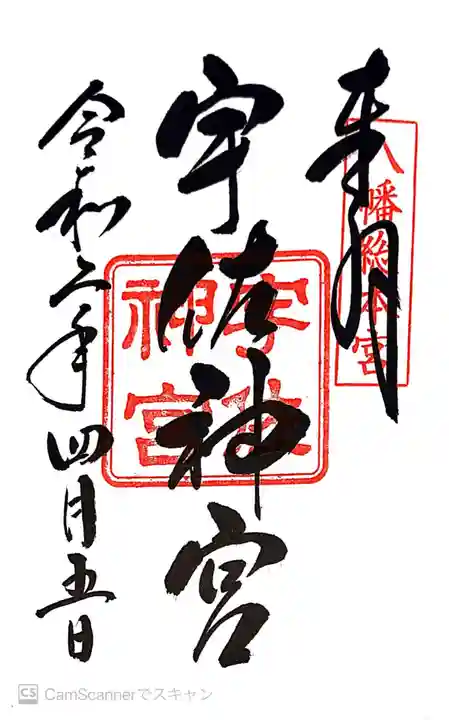 奉拝
八幡総本宮
宇佐神宮
宇佐神宮
令和二年四月五日
CS CamScannerでスキャン